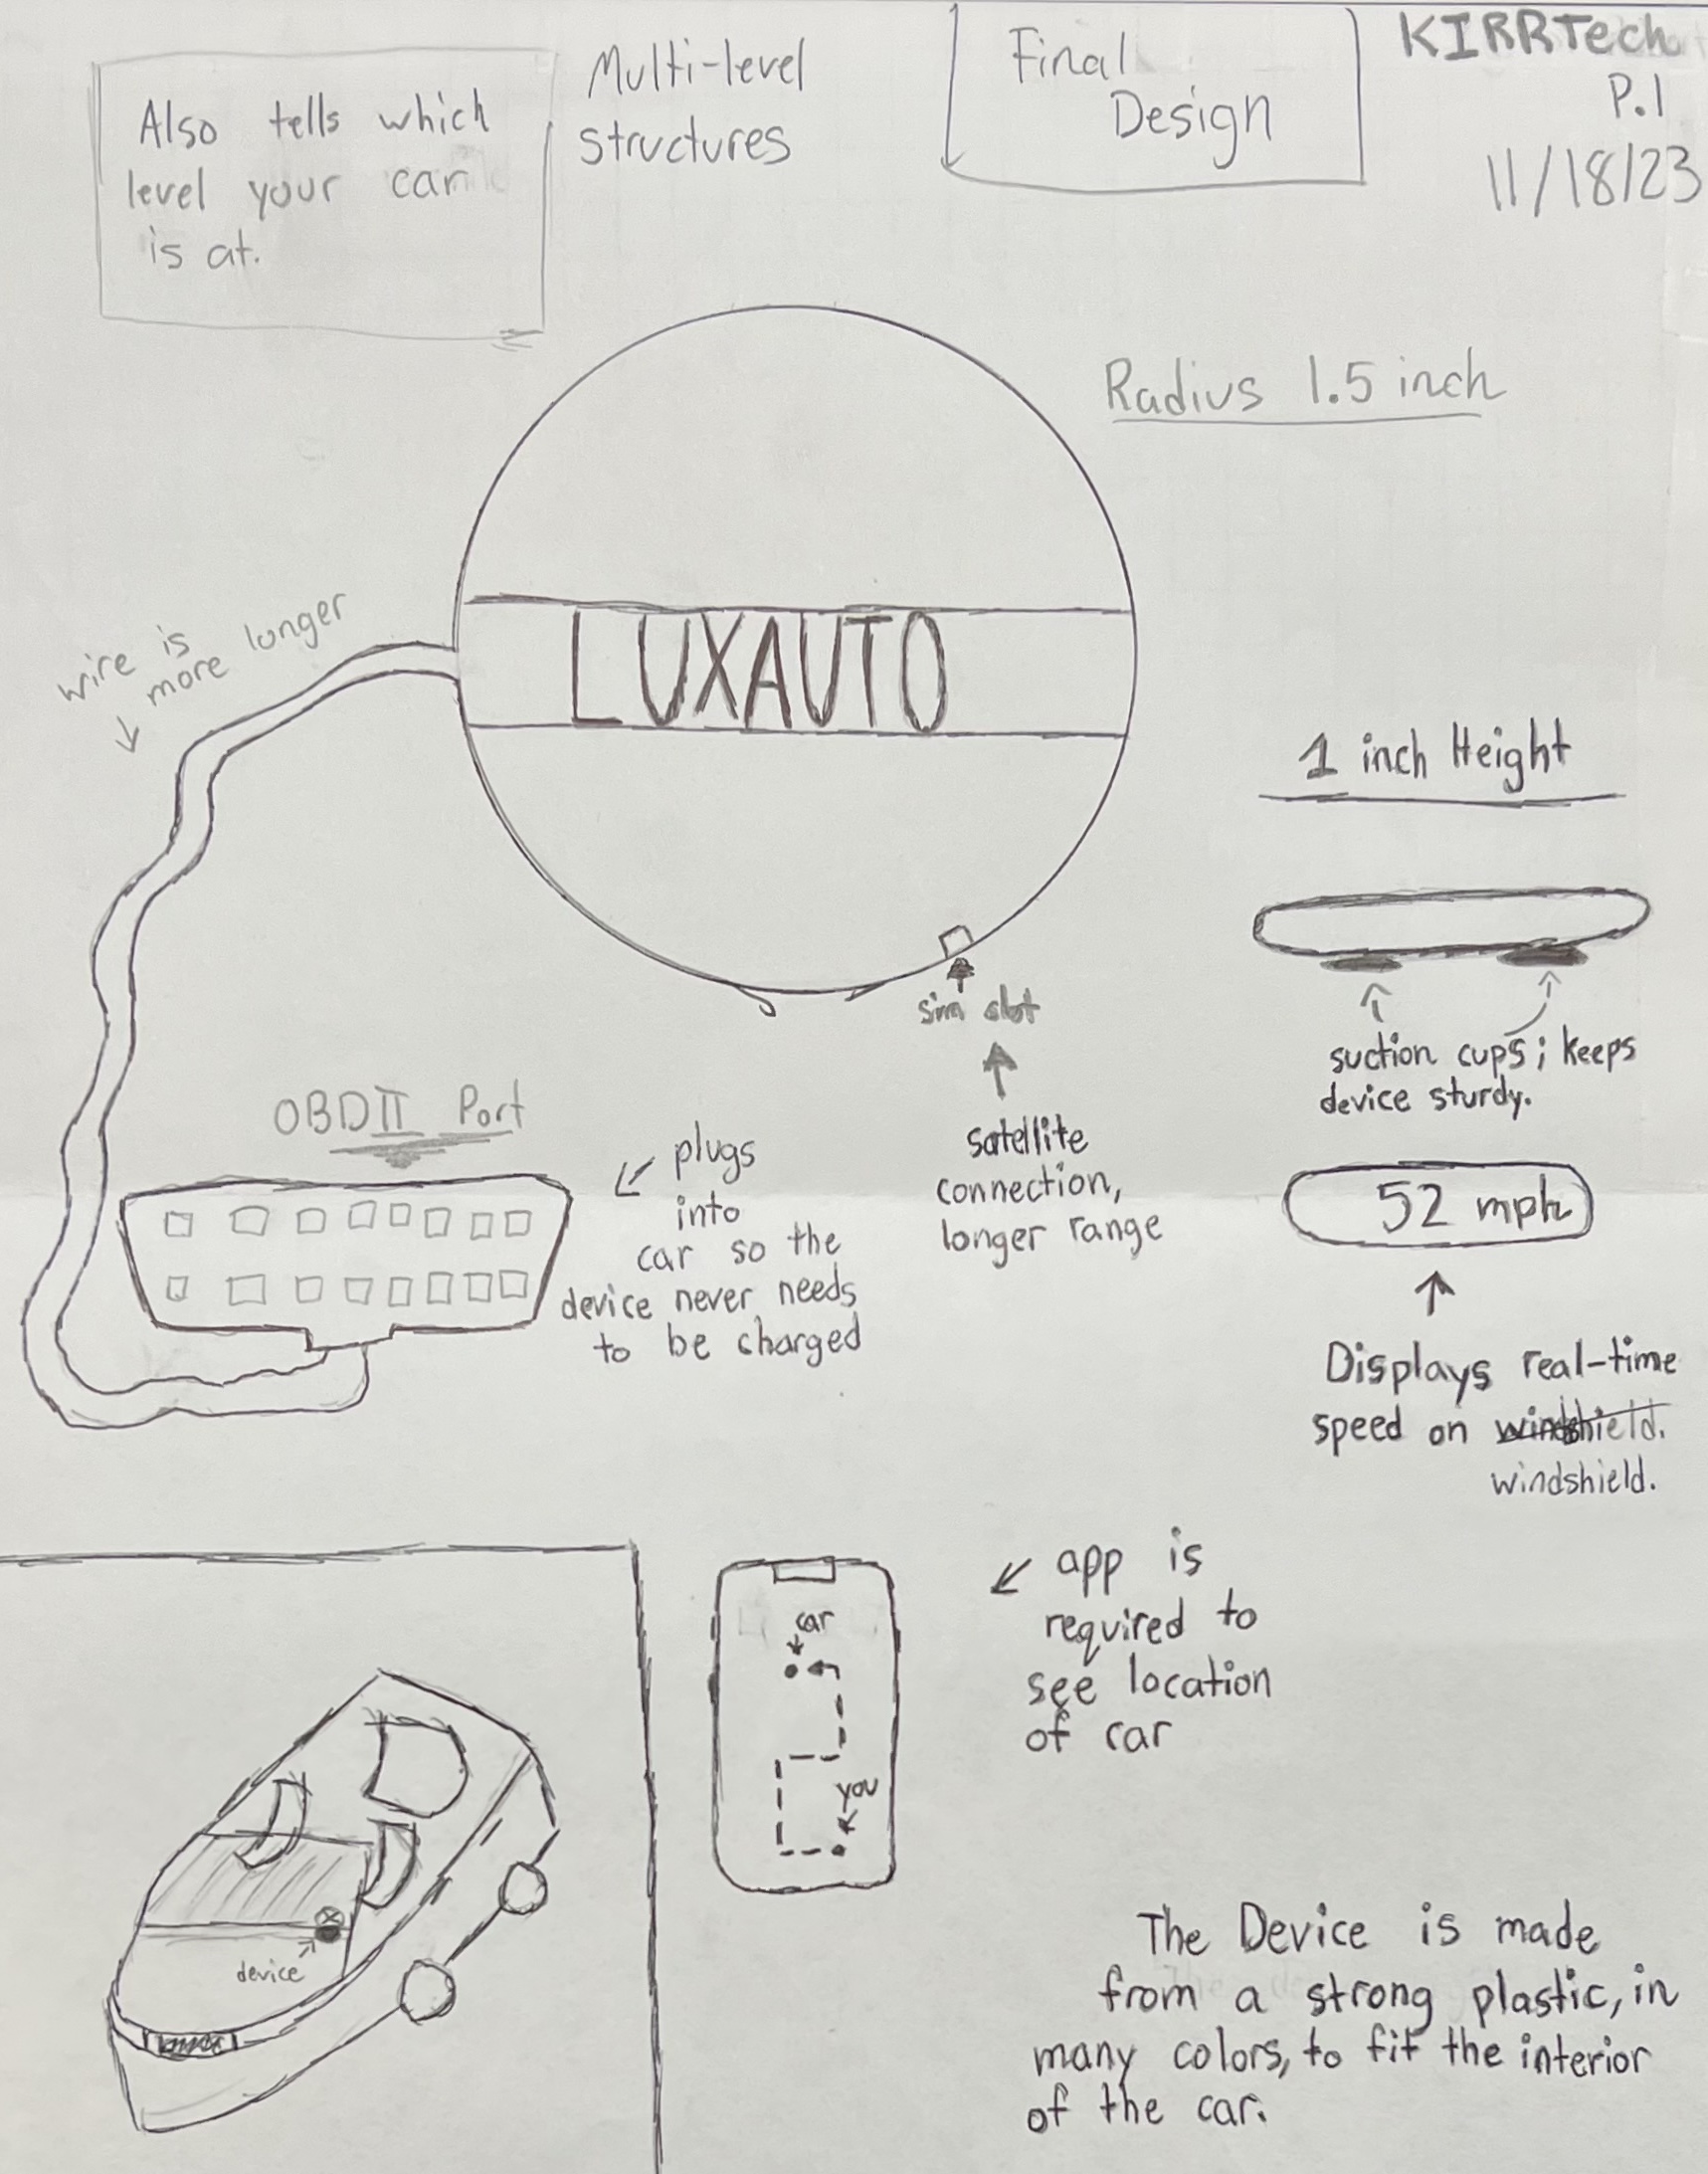 Also tells which
level your car
is at.
Multi-level
structures
Final
Design
KIRRTech
P.1
11/18/23
Radius 1.5 inch
wire is
more longer
LUXAUTO
1 inch Height
sim slot
satellite
connection,
longer range
suction cups; keeps
device sturdy.
OBDII Port
plugs
into
car so the
device never needs
to be charged
52 mph
Displays real-time
speed on windshield.
windshield.
car
you
app is
required to
see location
of car
device
The Device is made
from a strong plastic, in
many colors, to fit the interior
of the car.